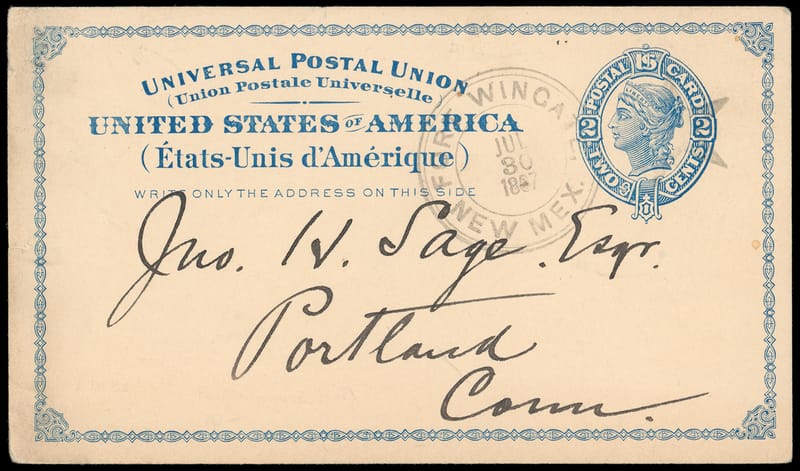 UNIVERSAL POSTAL UNION
(Union Postale Universelle)
UNITED STATES OF AMERICA
(États-Unis d'Amérique)
WRITE ONLY THE ADDRESS ON THIS SIDE
FORT WINGATE,
JUL
30
1887
NEW MEX.
POSTAL 1S CARD
LIBERTY
2 2
TWO CENTS
Jno. H. Sage. Esqr.
Portland
Conn.